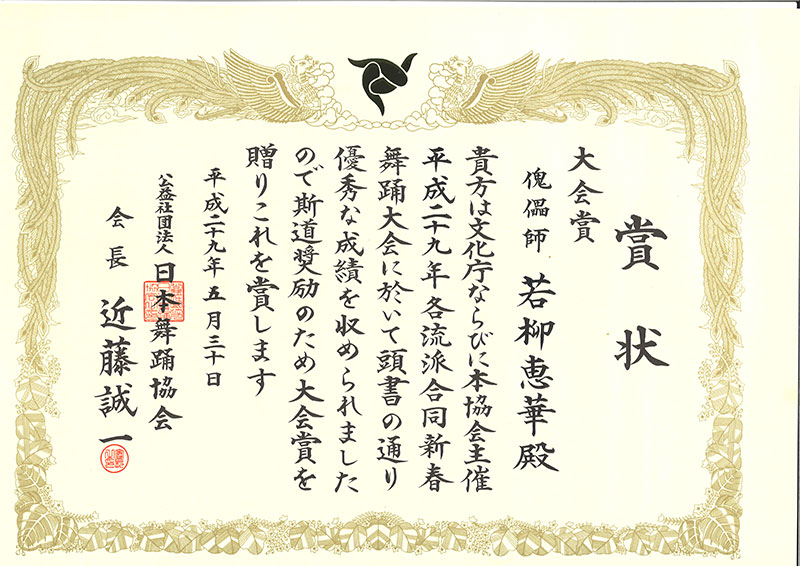 賞状
大会賞
傀儡師 若柳恵華殿
貴方は文化庁ならびに本協会主催
平成二十九年各流派合同新春
舞踊大会に於いて頭書の通り
優秀な成績を収められました
ので斯道奨励のため大会賞を
贈りこれを賞します
平成二十九年五月三十日
公益社団法人日本舞踊協会
会長 近藤誠一